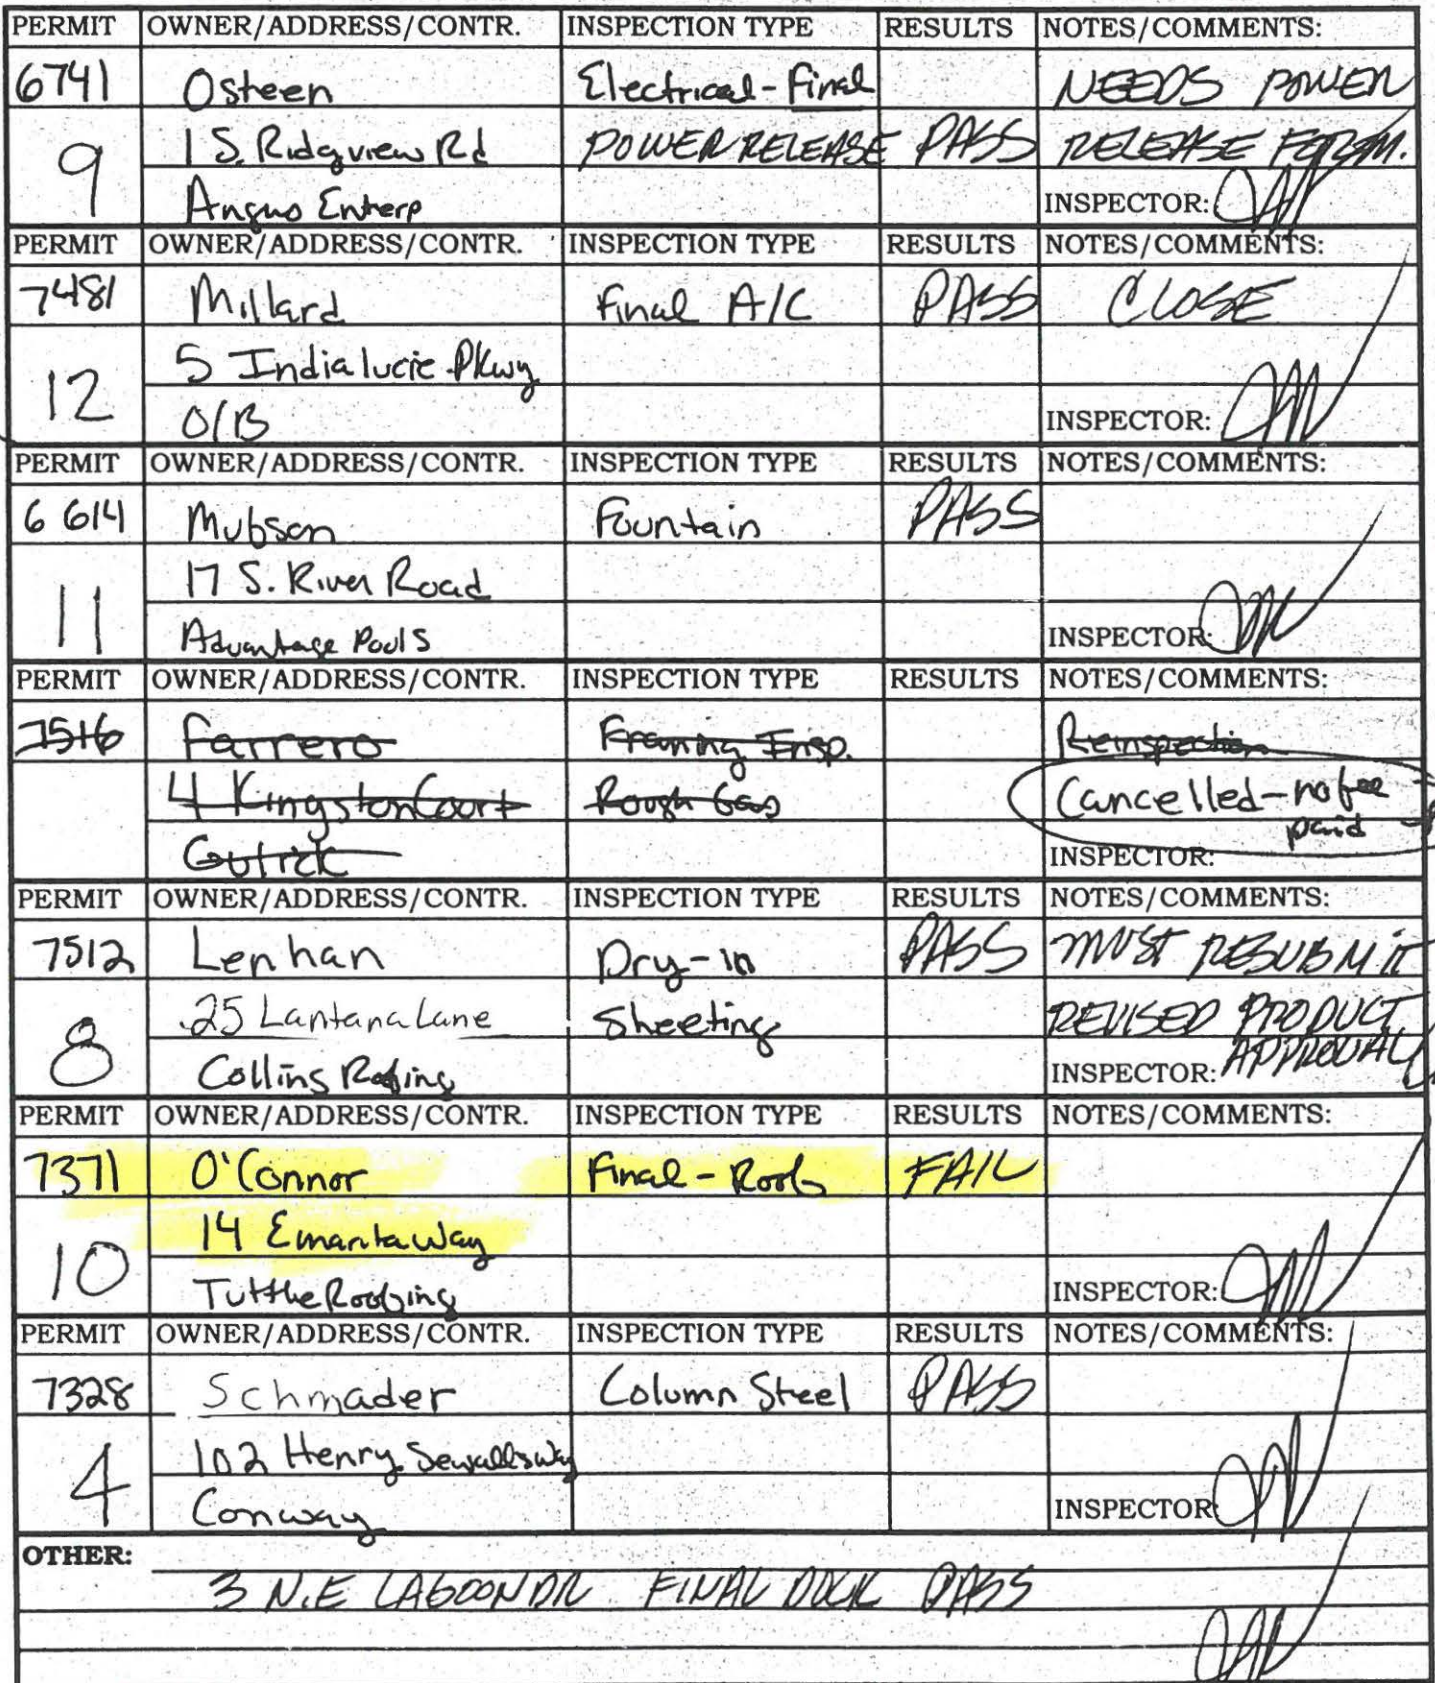 PERMIT OWNER/ADDRESS/CONTR. INSPECTION TYPE RESULTS NOTES/COMMENTS:
6741 Osteen Electrical - Final NEEDS POWER
9 1 S. Ridgview Rd POWER RELEASE PASS RELEASE FORM.
Angus Enterp INSPECTOR:
PERMIT OWNER/ADDRESS/CONTR. INSPECTION TYPE RESULTS NOTES/COMMENTS:
7481 Millard Final A/C PASS CLOSE
12 5 Indialucie Pkwy
O/B INSPECTOR:
PERMIT OWNER/ADDRESS/CONTR. INSPECTION TYPE RESULTS NOTES/COMMENTS:
6614 Fountain PASS
11 17 S. River Road
Advantage Pools INSPECTOR:
PERMIT OWNER/ADDRESS/CONTR. INSPECTION TYPE RESULTS NOTES/COMMENTS:
7516 Farrero Framing Insp. Reinspection
4 Kingston Court Rough Gas Cancelled - no fee
paid
INSPECTOR:
PERMIT OWNER/ADDRESS/CONTR. INSPECTION TYPE RESULTS NOTES/COMMENTS:
7512 Lenhan Dry-in PASS MUST RESUBMIT
8 25 Lantana Lane Sheeting REVISED PRODUCT
Collins Roofing INSPECTOR: APPROVAL
PERMIT OWNER/ADDRESS/CONTR. INSPECTION TYPE RESULTS NOTES/COMMENTS:
7371 O'Connor Final - Roof FAIL
10 14 Emarita Way
Tuttle Roofing INSPECTOR:
PERMIT OWNER/ADDRESS/CONTR. INSPECTION TYPE RESULTS NOTES/COMMENTS:
7328 Schmader Column Steel PASS
4 102 Henry Sewalls Way
Conway INSPECTOR:
OTHER:
3 N.E LAGOON DR FINAL DOCK PASS